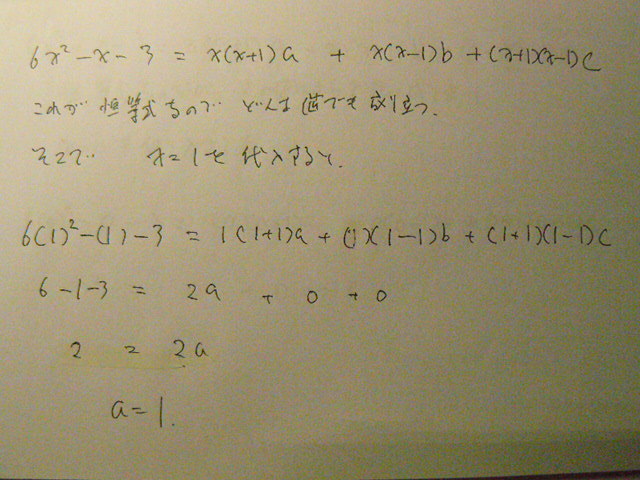 6x² - x - 3 = x(x+1)a + x(x-1)b + (x+1)(x-1)c
これが 恒等式なので どんな値でも成り立つ.
そこで x=1を代入すると.
6(1)² - (1) - 3 = 1(1+1)a + (1)(1-1)b + (1+1)(1-1)c
6 - 1 - 3 = 2a + 0 + 0
2 = 2a
a = 1.